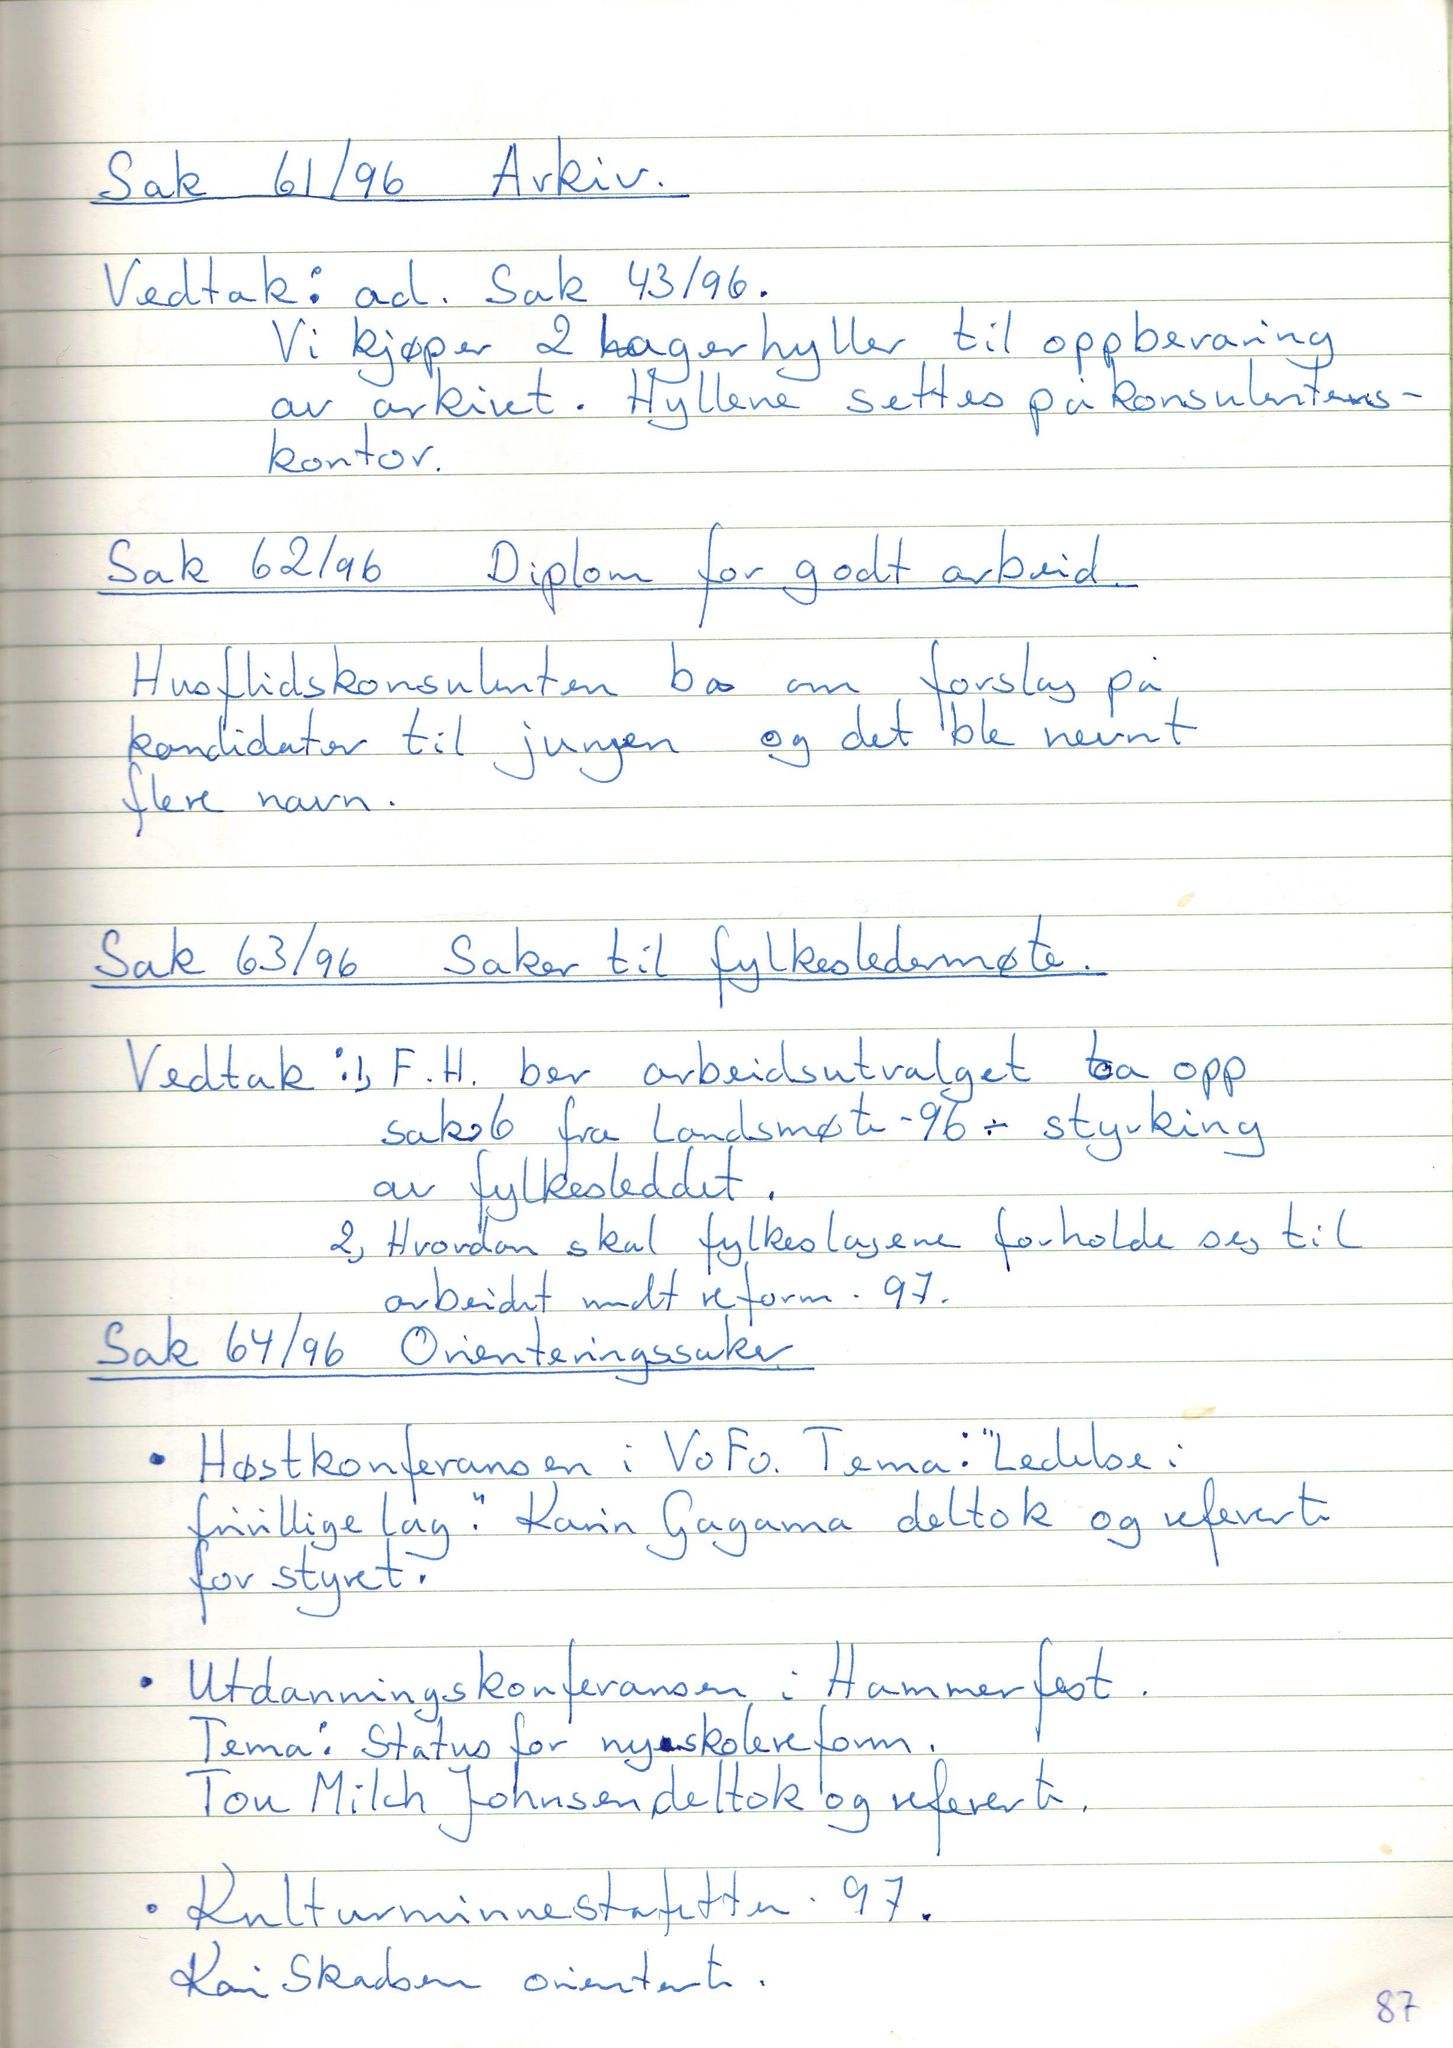 Sak 61/96 Arkiv.
Vedtak: ad. Sak 43/96.
Vi kjøper 2 lagerhyller til oppbevaring
av arkivet. Hyllene settes på konsulentens-
kontor.
Sak 62/96 Diplom for godt arbeid.
Husflidskonsulenten ba om forslag på
kandidater til juryen og det ble nevnt
flere navn.
Sak 63/96 Saker til fylkesledermøte.
Vedtak: 1, F.H. ber arbeidsutvalget ta opp
sak 6 fra Landsmøte -96 ÷ styrking
av fylkesleddet.
2, Hvordan skal fylkeslagene forholde seg til
arbeidet mdt reform. 97.
Sak 64/96 Orienteringssaker
• Høstkonferansen i VoFo. Tema: "Ledelse i
frivillige lag". Karin Gagama deltok og referert
for styret.
• Utdanningskonferansen i Hammerfest.
Tema: Status for ny skolereform.
Tou Milch Johnsen deltok og referert.
• Kulturminnestafetten. 97.
Kai Skadsen orienterte.
87